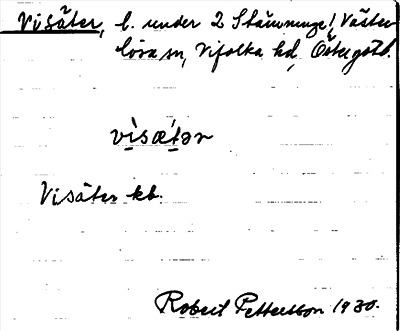 Visäter, l. under 2 Stämminge, Väster
lösa sn, Vifolka hd, Östergötl.
vìsæ̀tər
Visäter kb.
Robert Pettersson 1930.